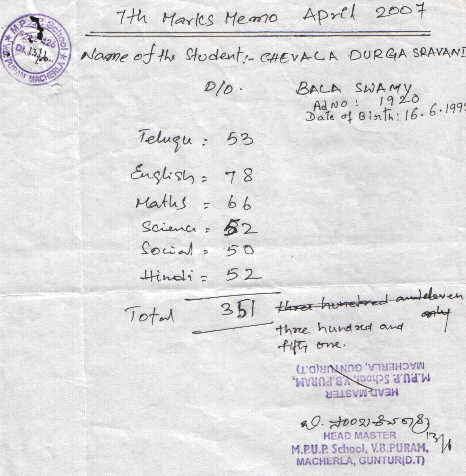 7th Marks Memo April 2007
M.P.U.P. School
PURAM, MACHERLA
Name of the Student:- CHEVALA DURGA SRAVANI
D/o. BALA SWAMY
Ad No: 1920
Date of Birth: 16.6.199
Telugu : 53
English = 78
Maths = 66
Science = 52
Social = 50
Hindi = 52
Total 351 three hundred and eleven only
three hundred and
fifty one.
HEAD MASTER
M.P.U.P. School, V.B.PURAM,
MACHERLA, GUNTUR(D.T)
13/6
HEAD MASTER
M.P.U.P. School, V.B.PURAM,
MACHERLA, GUNTUR(D.T)